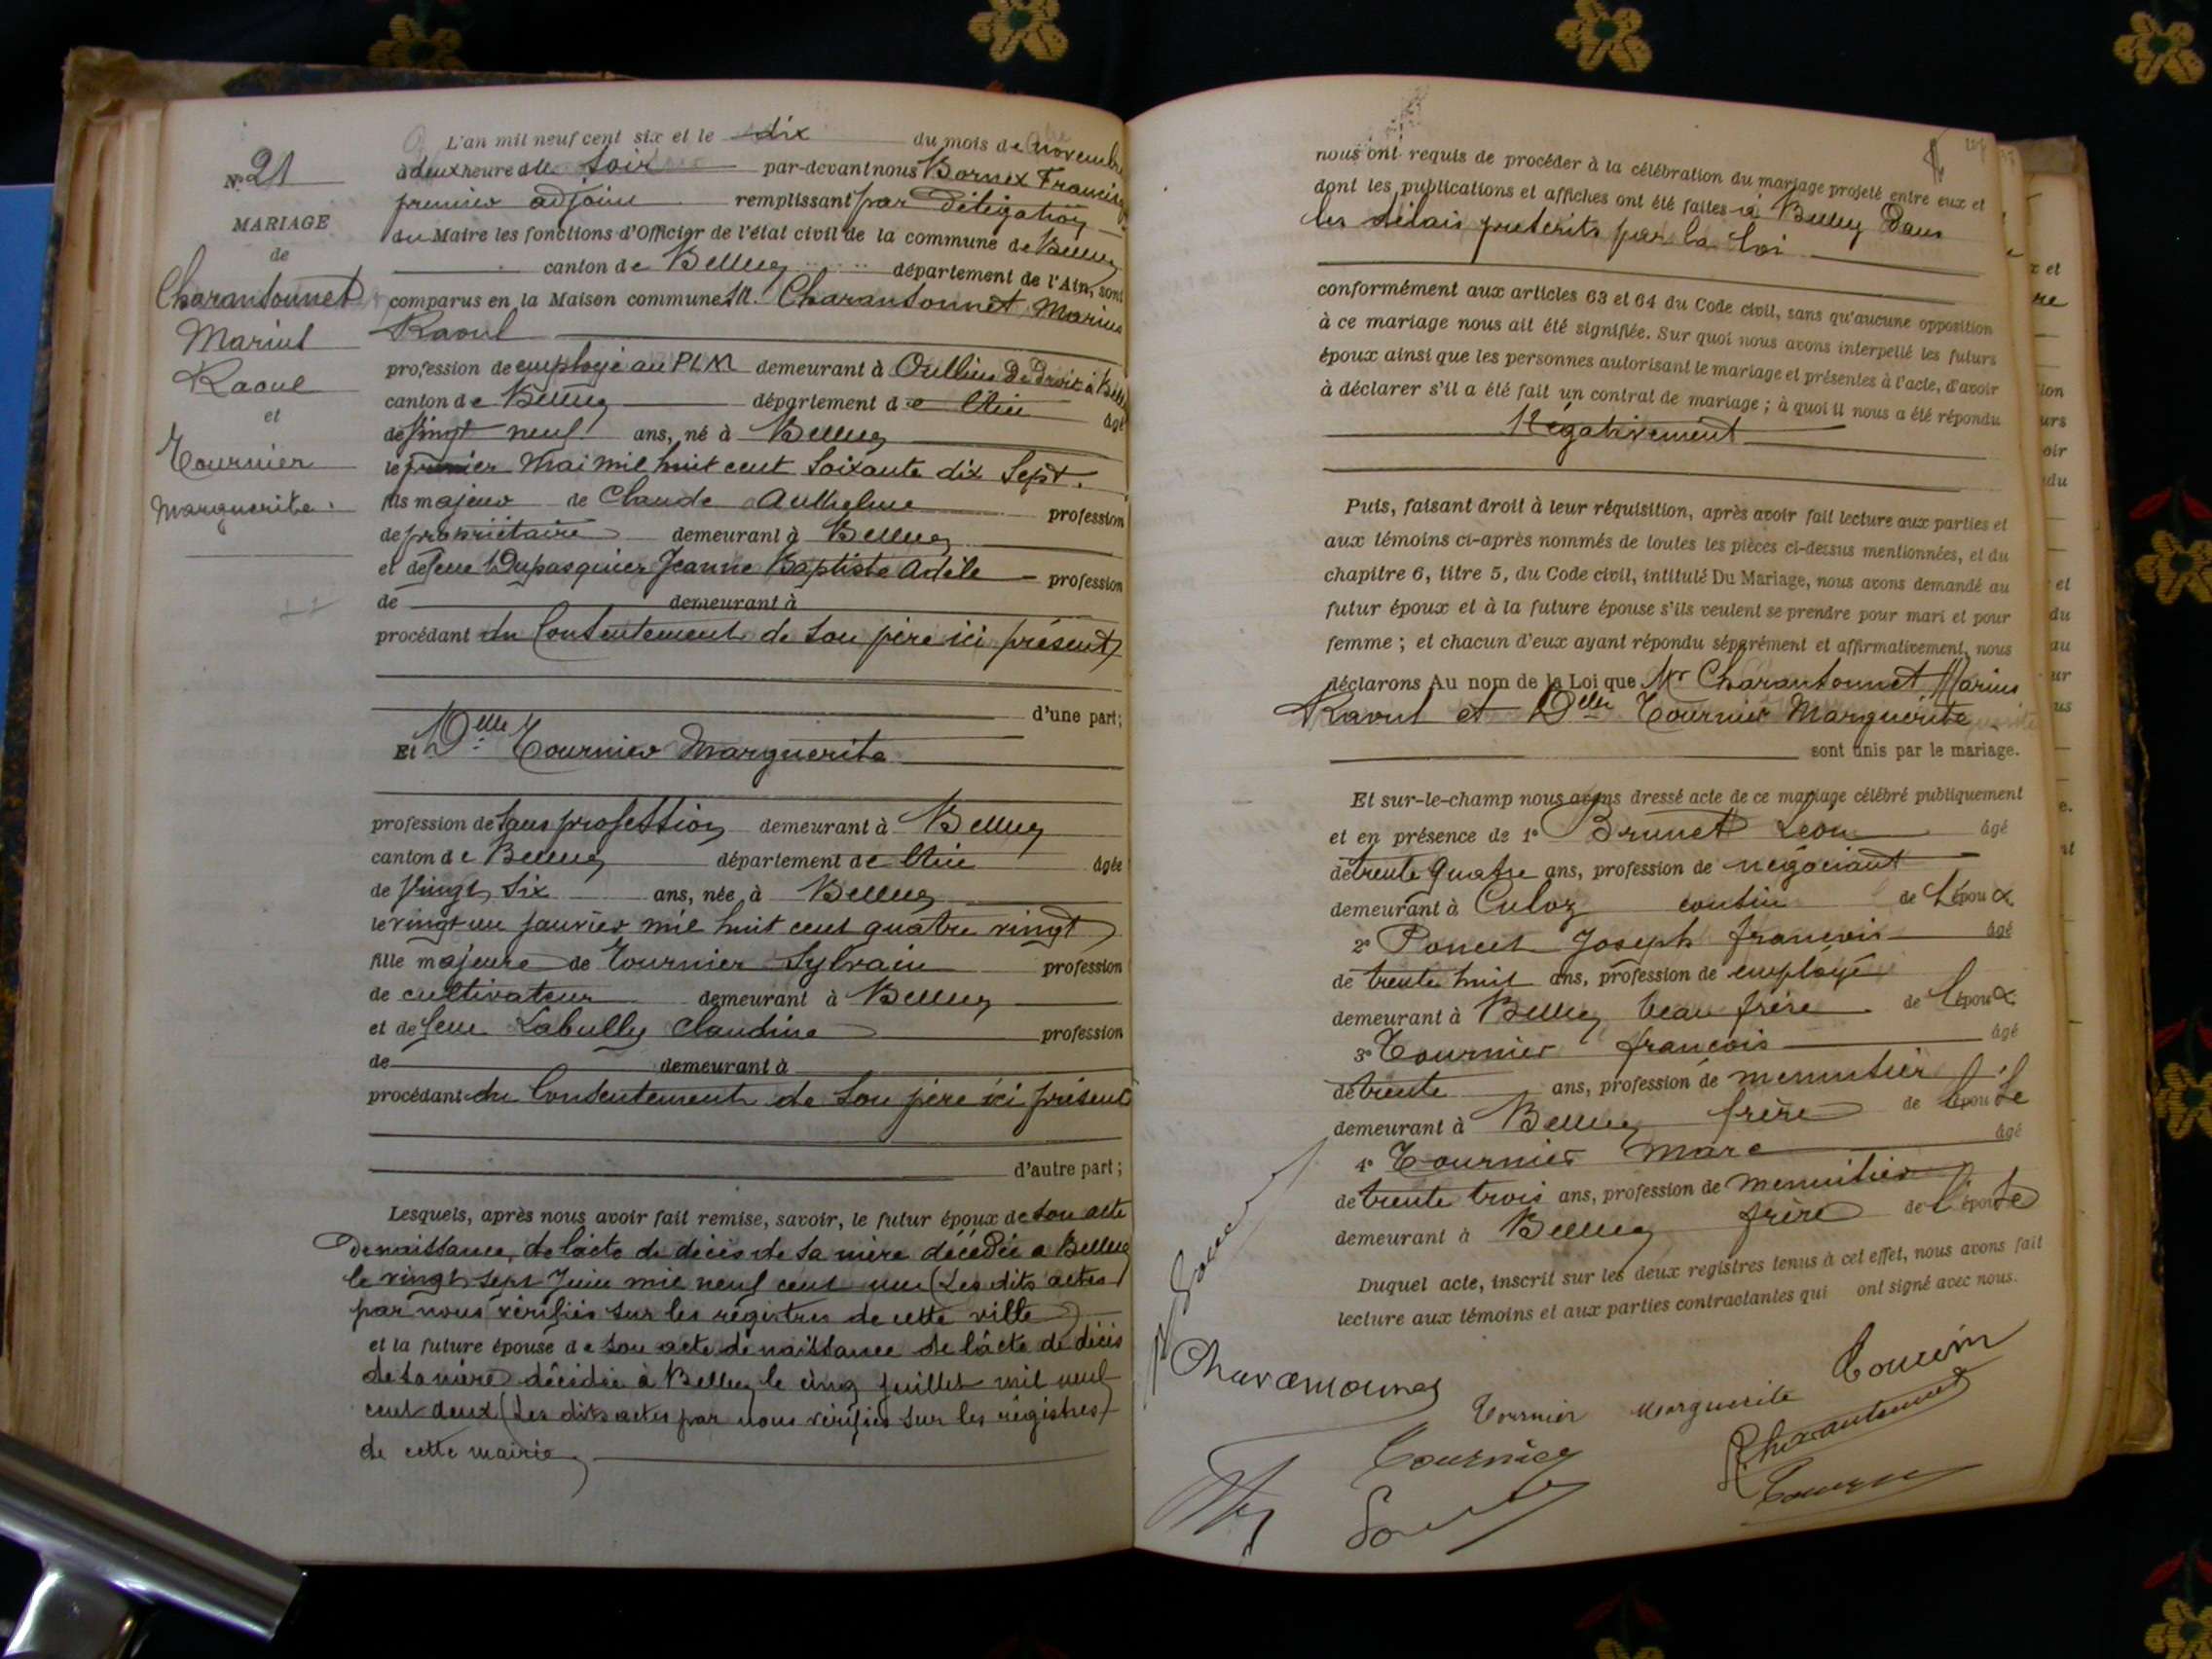 N° 21
MARIAGE
de
Charantonnet
Marius
Raoul
et
Tournier
Marguerite.
L'an mil neuf cent six et le dix du mois de novembre
à deux heure du soir par-devant nous Bornex
premier adjoint remplissant par délégation
du Maire les fonctions d'Officier de l'état civil de la commune de Belley
canton de Belley département de l'Ain, sont
comparus en la Maison commune M. Charantonnet Marius
Raoul
profession de employé au PLM demeurant à Oullins de droit à
canton de Belley département de l'Ain âgé
de vingt neuf ans, né à Belley
le premier Mai mil huit cent soixante dix sept.
fils majeur de Claude Anthelme profession
de propriétaire demeurant à Belley
et de feue Dupasquier Jeanne Baptiste Adèle profession
de demeurant à
procédant du Consentement de son père ici présent
d'une part;
Et Delle Tournier Marguerite
profession de sans profession demeurant à Belley
canton de Belley département de l'Ain âgée
de vingt six ans, née à Belley
le vingt un janvier mil huit cent quatre vingt
fille majeure de Tournier Sylvain profession
de cultivateur demeurant à Belley
et de feue Labully Claudine profession
de demeurant à
procédant du Consentement de son père ici présent
d'autre part;
Lesquels, après nous avoir fait remise, savoir, le futur époux de son acte
de naissance, de l'acte de décès de sa mère décédée à Belley
le vingt sept Juin mil neuf cent un (Les dits actes
par nous vérifiés sur les régistres de cette ville)
et la future épouse de son acte de naissance de l'acte de décès
de sa mère décédée à Belley le cinq juillet mil neuf
cent deux (Les dits actes par nous vérifiés sur les régistres)
de cette mairie
nous ont requis de procéder à la célébration du mariage projeté entre eux et
dont les publications et affiches ont été faites à Belley dans
les délais prescrits par la loi
conformément aux articles 63 et 64 du Code civil, sans qu'aucune opposition
à ce mariage nous ait été signifiée. Sur quoi nous avons interpellé les futurs
époux ainsi que les personnes autorisant le mariage et présentes à l'acte, d'avoir
à déclarer s'il a été fait un contrat de mariage; à quoi il nous a été répondu
Négativement
Puis, faisant droit à leur réquisition, après avoir fait lecture aux parties et
aux témoins ci-après nommés de toutes les pièces ci-dessus mentionnées, et du
chapitre 6, titre 5, du Code civil, intitulé Du Mariage, nous avons demandé au
futur époux et à la future épouse s'ils veulent se prendre pour mari et pour
femme; et chacun d'eux ayant répondu séparément et affirmativement, nous
déclarons Au nom de la Loi que Mr Charantonnet Marius
Raoul et Delle Tournier Marguerite
sont unis par le mariage.
Et sur-le-champ nous avons dressé acte de ce mariage célébré publiquement
et en présence de 1° Brunet Léon âgé
de trente quatre ans, profession de négociant
demeurant à Culoz cousin de l'époux
2° Poncet Joseph françois âgé
de trente huit ans, profession de employé
demeurant à Belley beau frère de l'époux
3° Tournier françois âgé
de trente ans, profession de menuisier
demeurant à Belley frère de l'épouse
4° Tournier Marc âgé
de trente trois ans, profession de menuisier
demeurant à Belley frère de l'épouse
Duquel acte, inscrit sur les deux registres tenus à cet effet, nous avons fait
lecture aux témoins et aux parties contractantes qui ont signé avec nous.
Tournier Marguerite
Charantonnet
Tournier